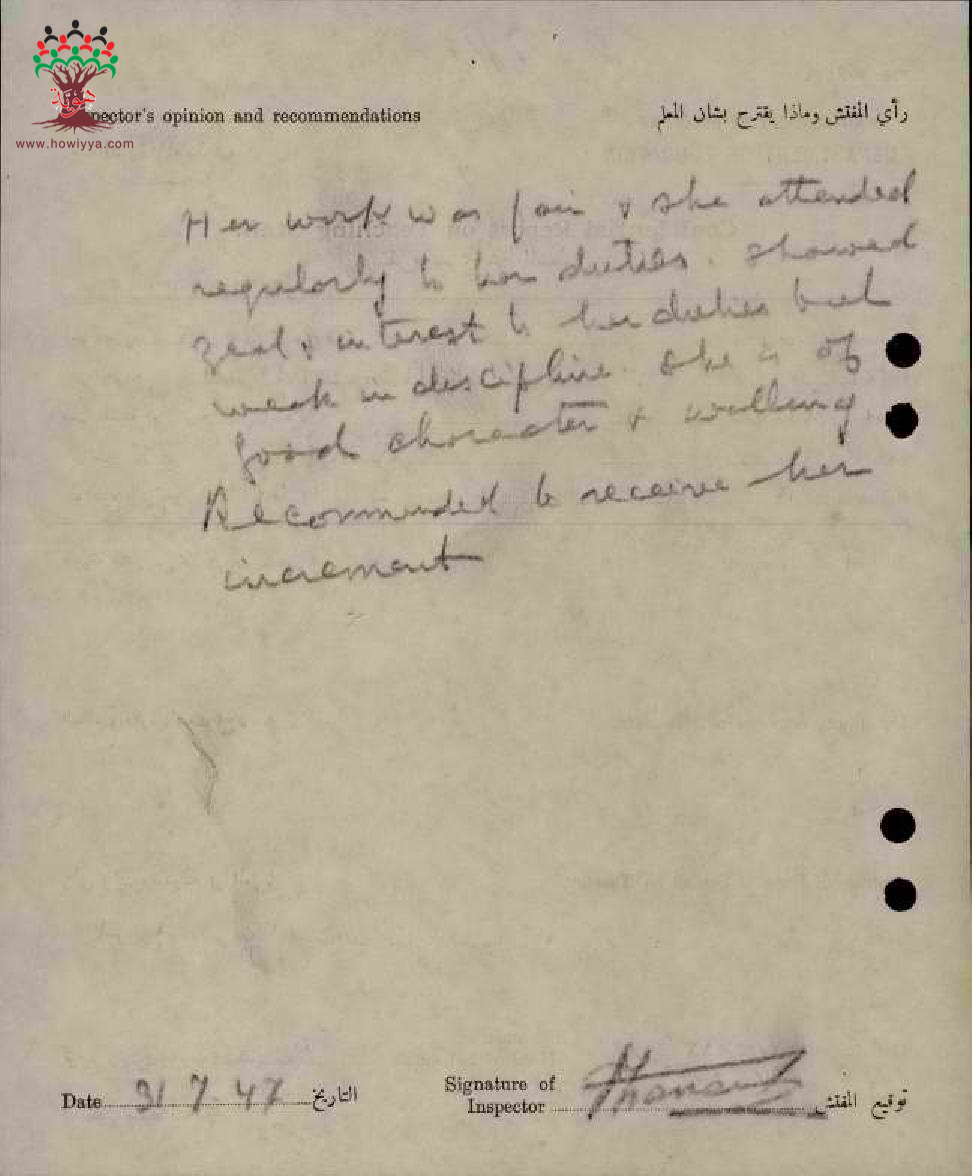 حويّة
www.howiyya.com
pector's opinion and recommendations
رأي المفتش وماذا يقترح بشان المعلم
Her work was fair & she attended
regularly to her duties. Showed
zeal & interest to her duties but
weak in discipline. She is of
good character & willing.
Recommended to receive her
increment
Date 31.7.47 التاريخ
Signature of
Inspector توقيع المفتش